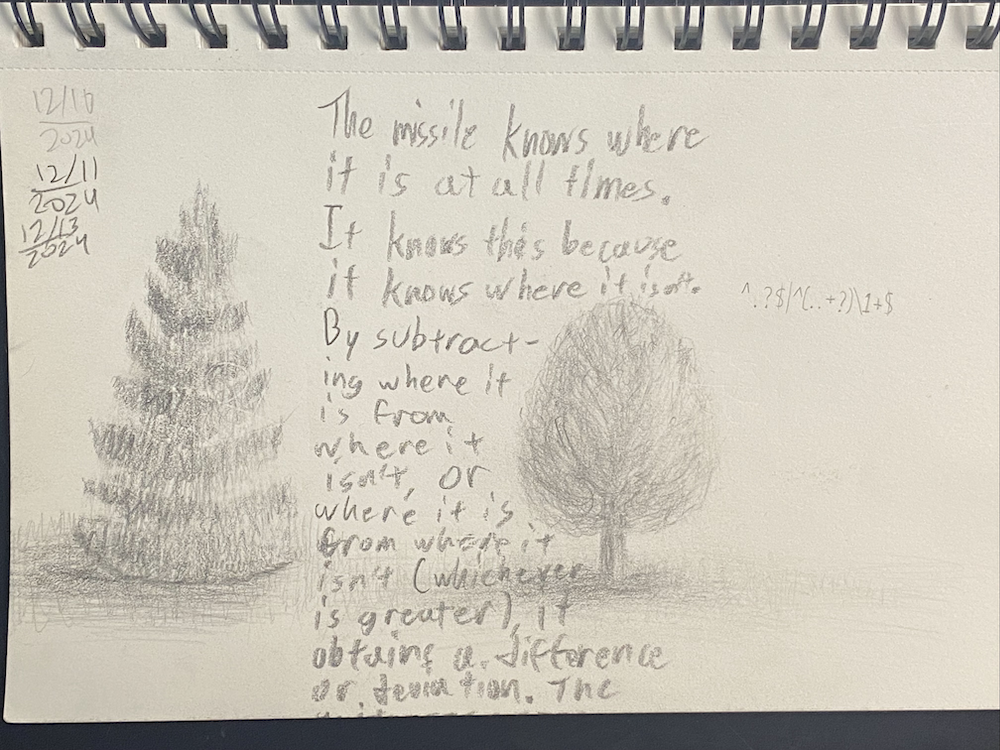 12/10
2024
12/11
2024
12/13
2024
The missile knows where
it is at all times.
It knows this because
it knows where it isn't.
^..?$|^(..+?)\1+$
By subtract-
ing where it
is from
where it
isn't, or
where it is
from where it
isn't (whichever
is greater), it
obtains a difference
or deviation. The